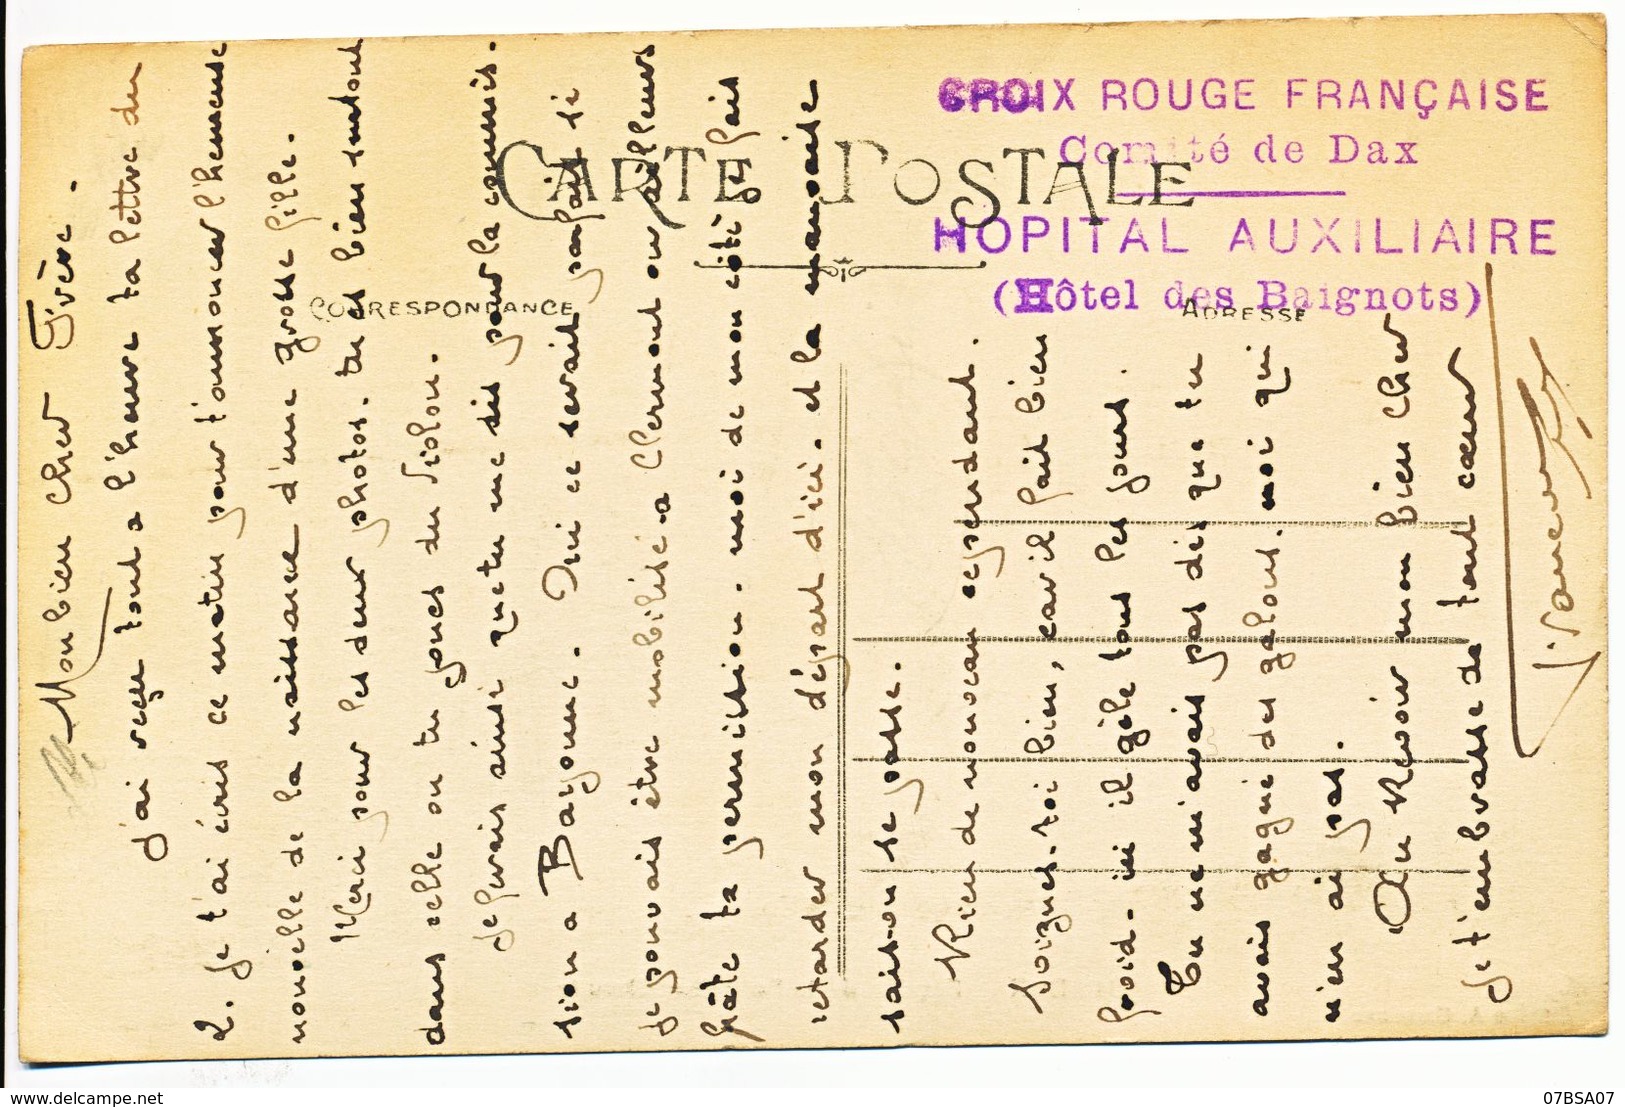 CARTE POSTALE
CORRESPONDANCE
ADRESSE
CROIX ROUGE FRANÇAISE
Comité de Dax
HOPITAL AUXILIAIRE
(Hôtel des Baignots)
Mon bien cher Frère.
J'ai reçu tout a l'heure ta lettre du
2. Je t'ai écris ce matin pour t'announcer l'heureuse
nouvelle de la naissance d'une grosse fille.
Merci pour les deux photos. tu es bien surtout
dans celle ou tu joues du Violon.
Je ferais ainsi que tu me dis pour la commis-
sion a Bayonne. Oui ce serait parfait si
je pouvais être mobilisé a Clermont ou ailleurs
hâte ta permission. moi de mon côté je fais
retarder mon départ d'ici. et la mauvaise
saison se passe.
Rien de nouveau cependant.
Soignes-toi bien, car il fait bien
froid - ici il gèle tous les jours.
Tu ne m'avais pas dit que tu
avais gagné des galons. moi qui
n'en ai pas.
Au Revoir mon bien cher
Je t'embrasse de tout cœur
07BSA07
www.delcampe.net